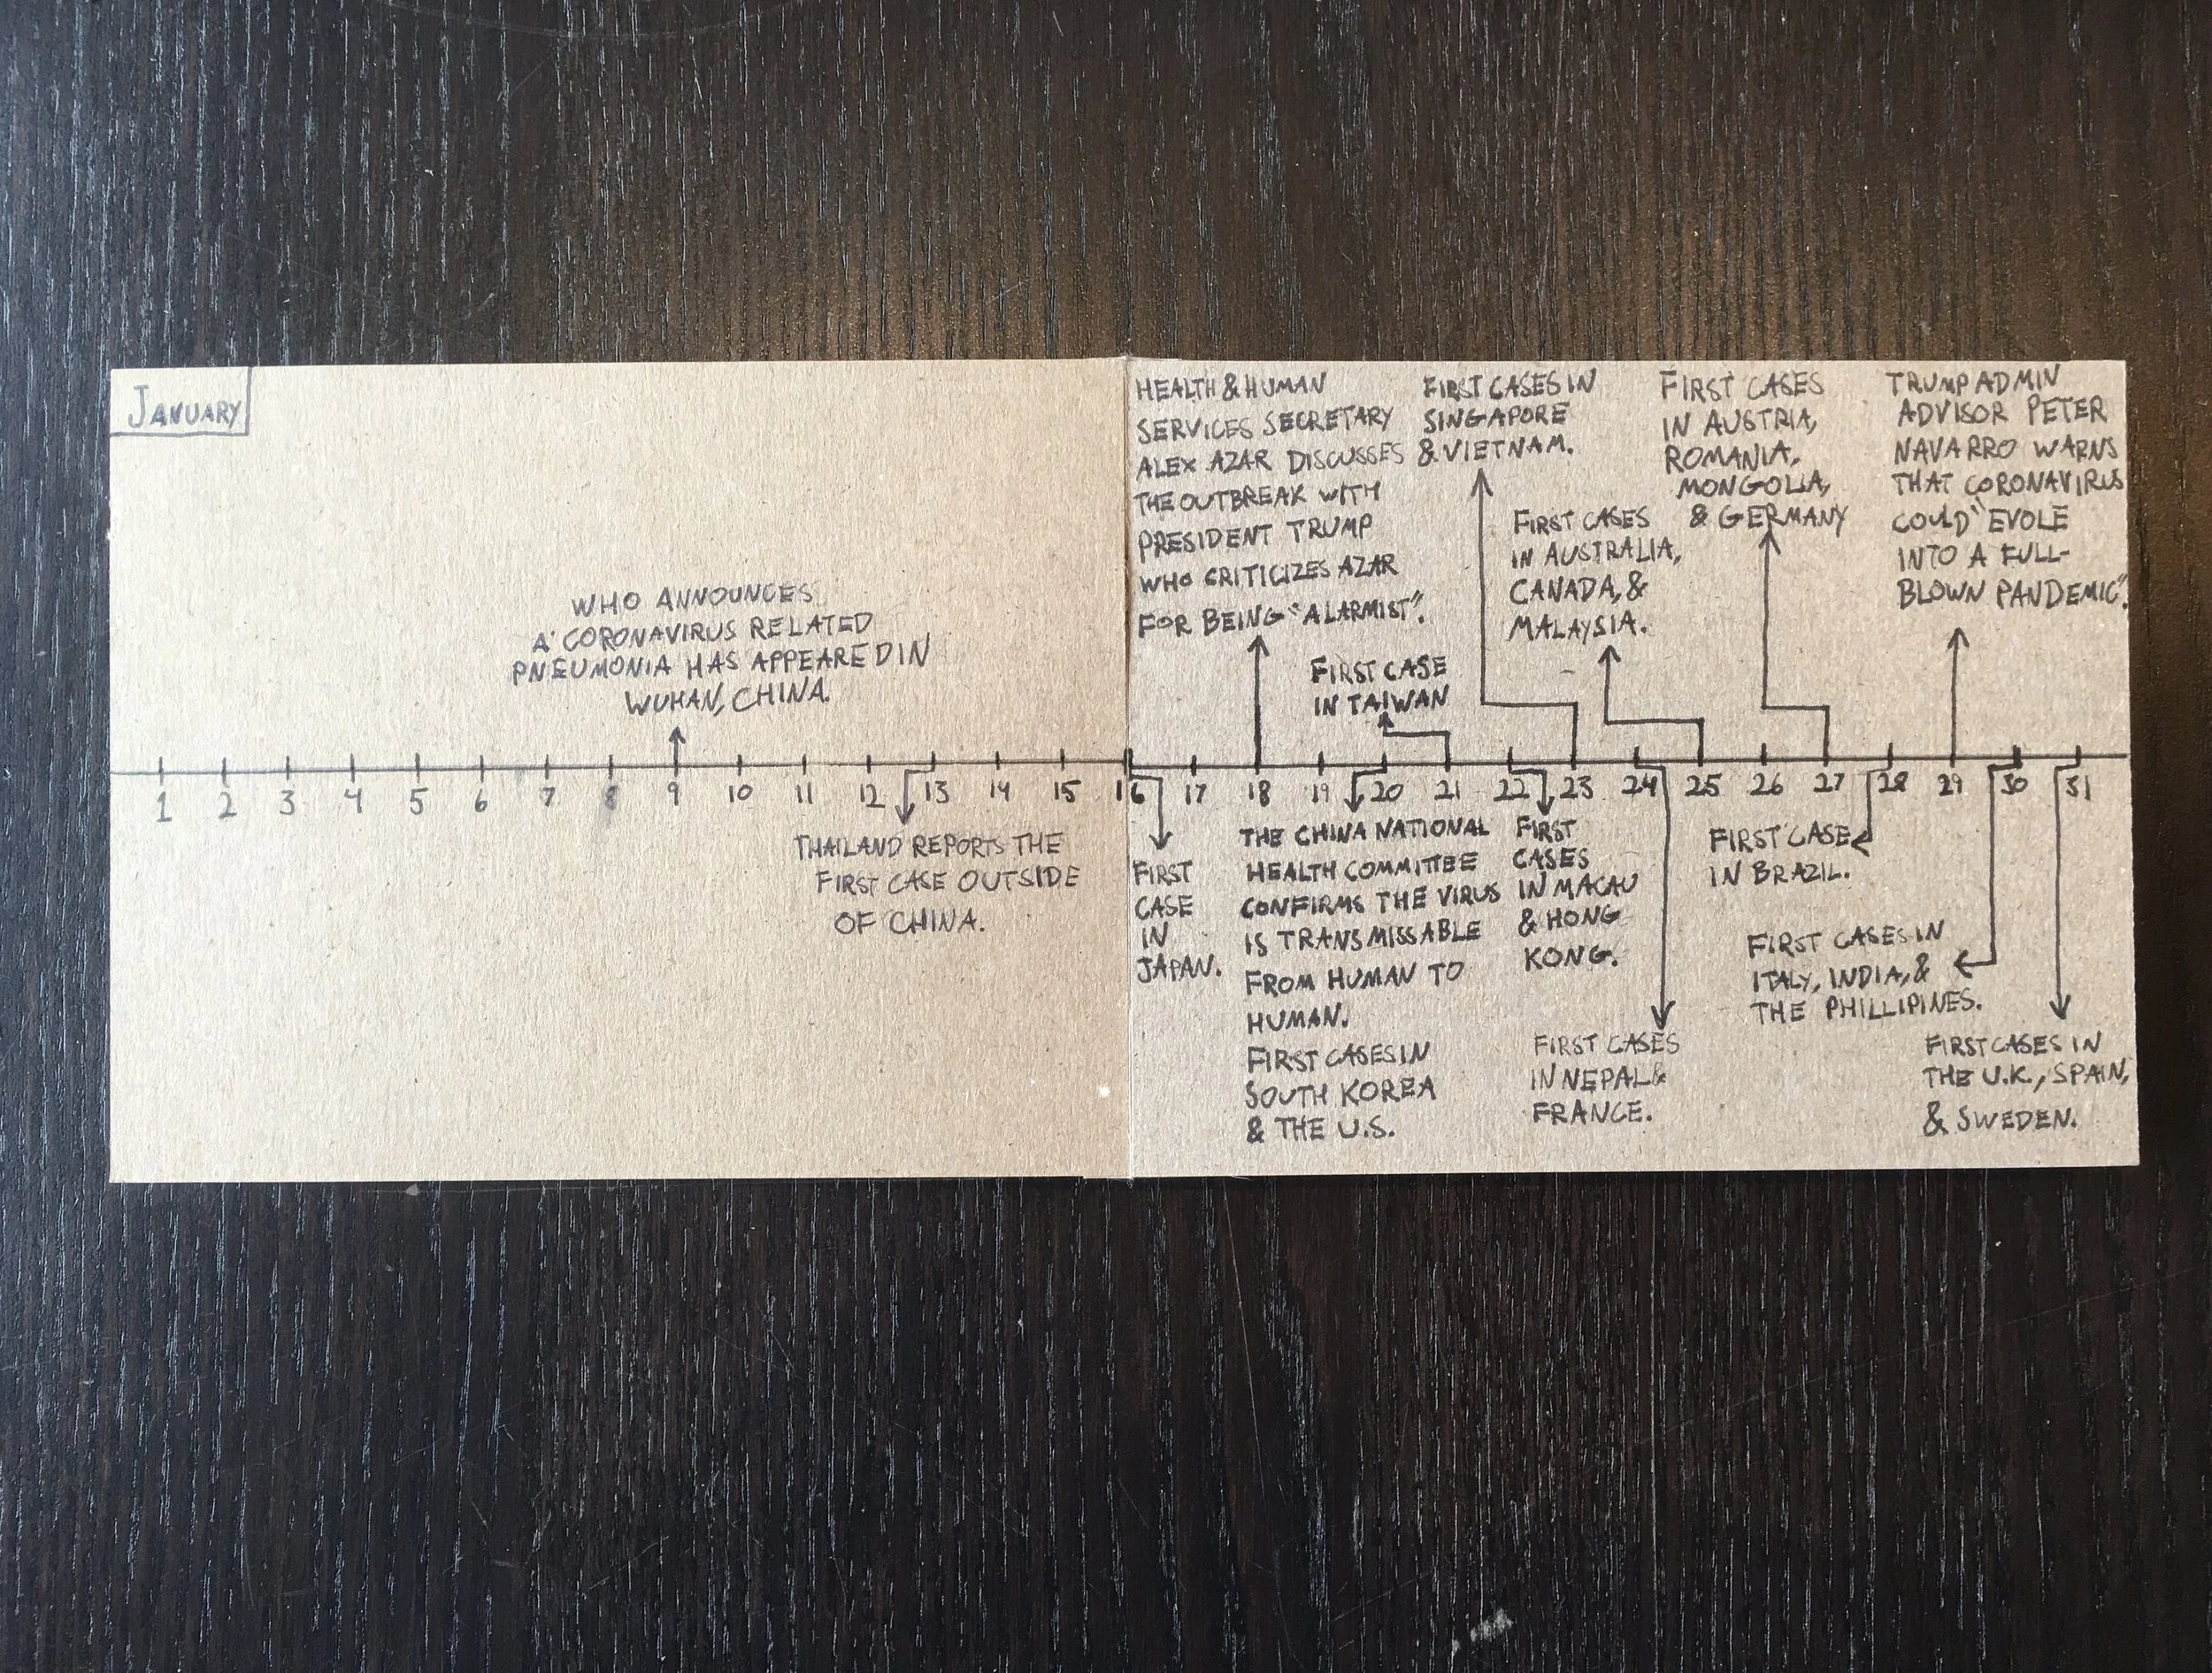 January
WHO ANNOUNCES
A CORONAVIRUS RELATED
PNEUMONIA HAS APPEARED IN
WUHAN, CHINA.
1 2 3 4 5 6 7 8 9 10 11 12 13 14 15 16 17 18 19 20 21 22 23 24 25 26 27 28 29 30 31
THAILAND REPORTS THE
FIRST CASE OUTSIDE
OF CHINA.
HEALTH & HUMAN
SERVICES SECRETARY
ALEX AZAR DISCUSSES
THE OUTBREAK WITH
PRESIDENT TRUMP
WHO CRITICIZES AZAR
FOR BEING "ALARMIST".
FIRST CASE
IN TAIWAN
FIRST CASES IN
SINGAPORE
& VIETNAM.
FIRST CASES
IN AUSTRALIA,
CANADA, &
MALAYSIA.
FIRST CASES
IN AUSTRIA,
ROMANIA,
MONGOLIA,
& GERMANY
TRUMP ADMIN
ADVISOR PETER
NAVARRO WARNS
THAT CORONAVIRUS
COULD "EVOLE
INTO A FULL-
BLOWN PANDEMIC".
FIRST
CASE
IN
JAPAN.
THE CHINA NATIONAL
HEALTH COMMITTEE
CONFIRMS THE VIRUS
IS TRANSMISSABLE
FROM HUMAN TO
HUMAN.
FIRST CASES IN
SOUTH KOREA
& THE U.S.
FIRST
CASES
IN MACAU
& HONG
KONG.
FIRST CASES
IN NEPAL &
FRANCE.
FIRST CASE
IN BRAZIL.
FIRST CASES IN
ITALY, INDIA, &
THE PHILLIPINES.
FIRST CASES IN
THE U.K., SPAIN,
& SWEDEN.